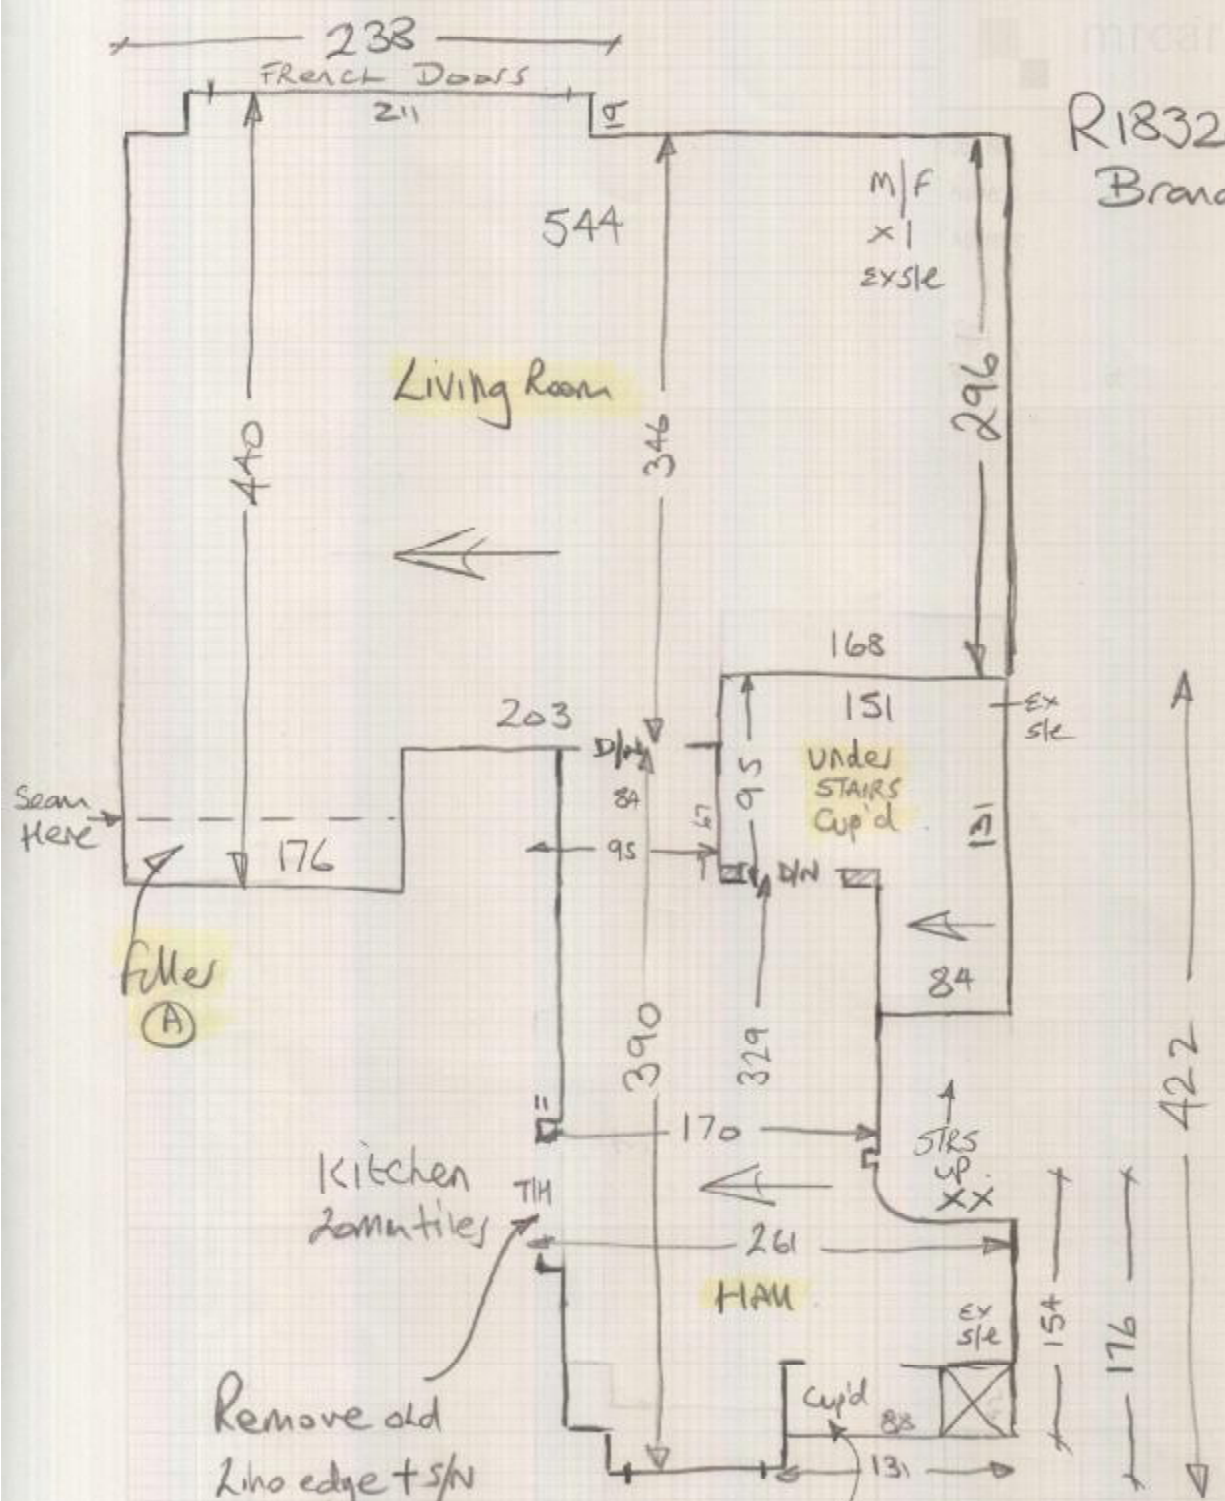 238
French Doors
211
R1832
M/F
x 1
Ex s/e
544
Living Room
440
346
296
168
151
Ex
s/e
203
D/N
84
95
67
95
Under
STAIRS
Cup'd
131
Seam
Here
176
D/N
84
filler
A
390
329
422
11
170
STRS
up
XX
Kitchen
20mm tiles
T/H
261
HAll
Ex
s/e
154
176
Cup'd
88
131
Remove old
Lino edge + S/N